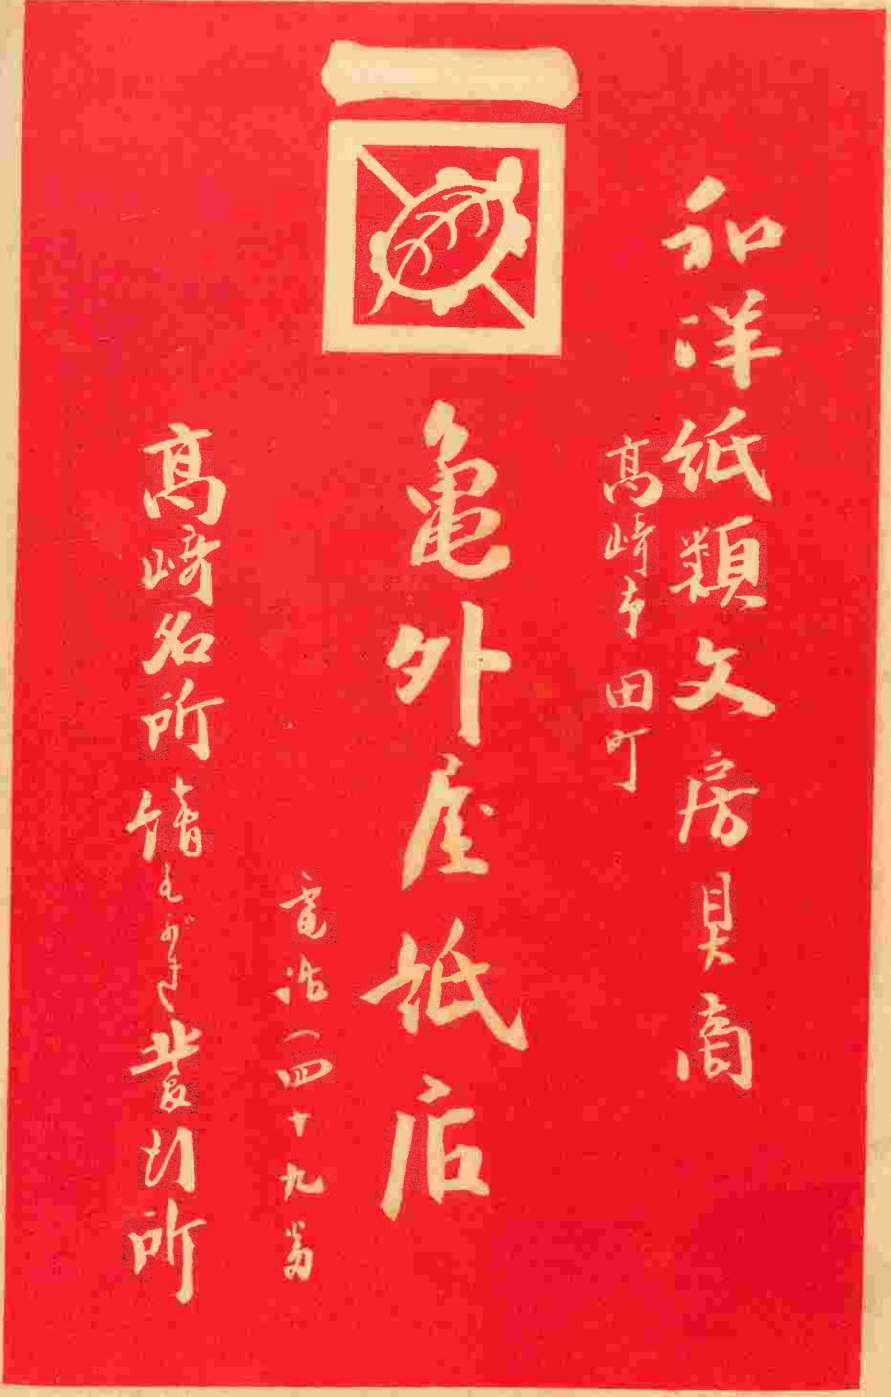 和洋紙類文房具商
髙﨑市田町
亀外屋紙店
電話四十九番
髙﨑名所繪はがき發行所